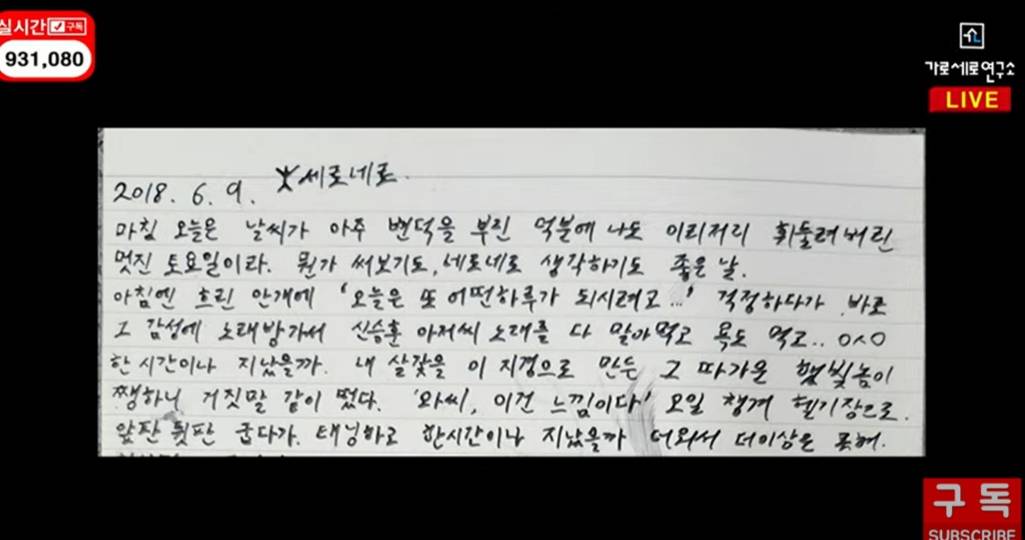 실시간 구독
931,080
가로세로연구소
LIVE
2018. 6. 9. 세로네로.
마침 오늘은 날씨가 아주 변덕을 부린 덕분에 나도 이리저리 휘둘려버린
멋진 토요일이라. 뭔가 써보기도, 세로네로 생각하기도 좋은 날.
아침엔 흐린 안개에 '오늘은 또 어떤하루가 되시려고...' 걱정하다가 바로
그 감성에 노래방가서 신승훈 아저씨 노래를 다 말아먹고 욕도 먹고.. 0ㅅ0
한 시간이나 지났을까. 내 살갗을 이 지경으로 만든 그 따가운 햇빛놈이
쨍하니 거짓말 같이 떴다. '와씨, 이건 느낌이다' 오일 챙겨 헬기장으로.
앞판 뒷판 굽다가. 태닝하고 한시간이나 지났을까 더워서 더이상은 못해.
구독
SUBSCRIBE